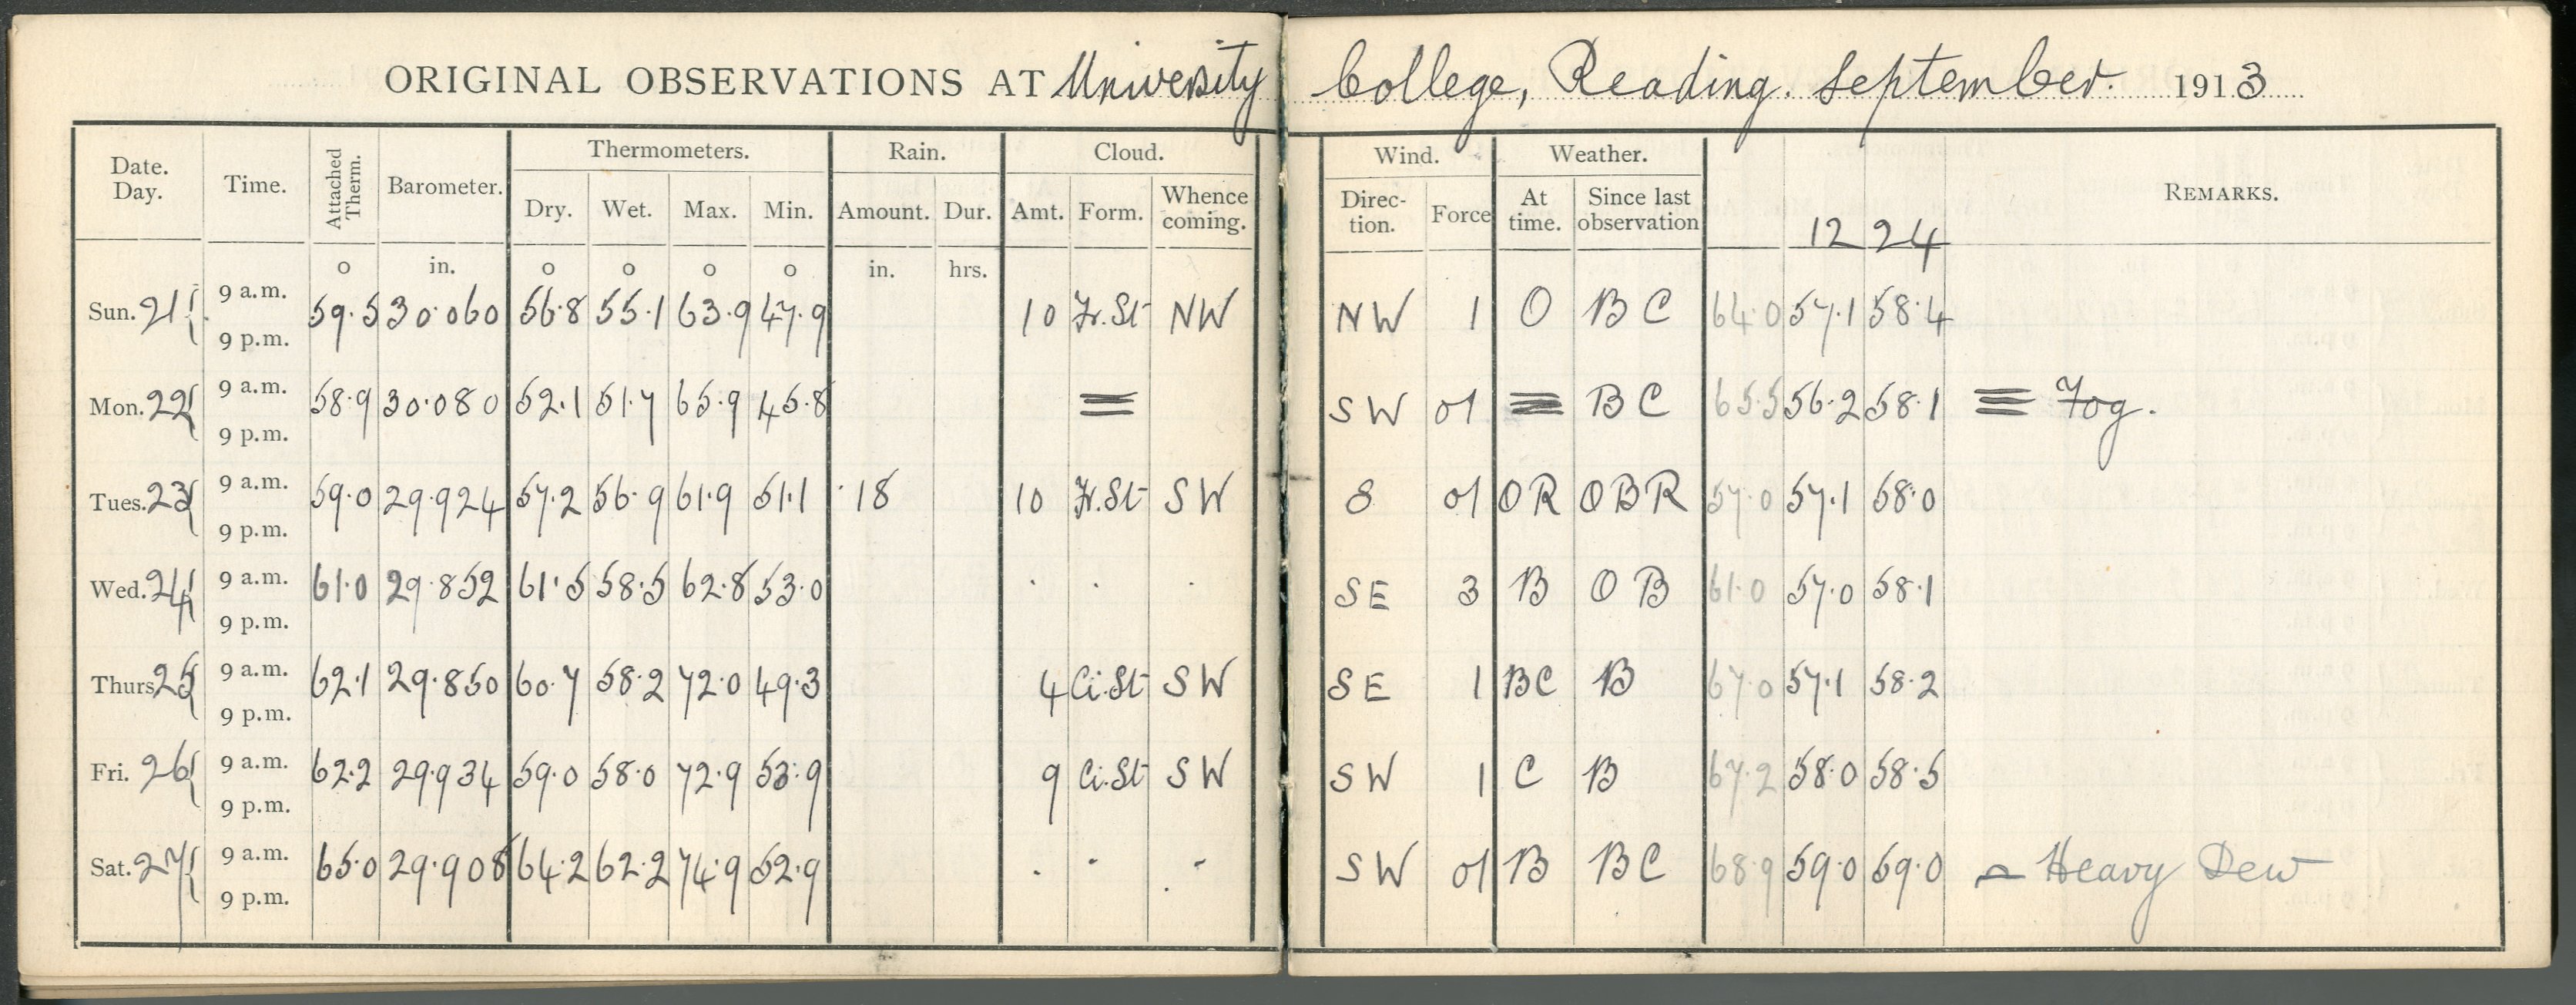 ORIGINAL OBSERVATIONS AT University College, Reading. September. 1913
Date. Day. Time. Attached Therm. Barometer. Thermometers. Rain. Cloud. Wind. Weather. REMARKS.
Dry. Wet. Max. Min. Amount. Dur. Amt. Form. Whence coming. Direc-tion. Force At time. Since last observation 12 24
o in. o o o o in. hrs.
Sun. 21 { 9 a.m. 59.5 30.060 56.8 55.1 63.9 47.9 10 Fr.St NW NW 1 O BC 64.0 57.1 58.4
9 p.m.
Mon. 22 { 9 a.m. 58.9 30.080 52.1 51.7 65.9 45.8 ≡ SW 01 ≡ BC 65.5 56.2 58.1 ≡ Fog.
9 p.m.
Tues. 23 { 9 a.m. 59.0 29.924 57.2 56.9 61.9 51.1 .18 10 Fr.St SW S 01 OR OBR 57.0 57.1 58.0
9 p.m.
Wed. 24 { 9 a.m. 61.0 29.852 61.5 58.5 62.8 53.0 . . . SE 3 B OB 61.0 57.0 58.1
9 p.m.
Thurs 25 { 9 a.m. 62.1 29.850 60.7 58.2 72.0 49.3 4 Ci.St SW SE 1 BC B 67.0 57.1 58.2
9 p.m.
Fri. 26 { 9 a.m. 62.2 29.934 59.0 58.0 72.9 53.9 9 Ci.St SW SW 1 C B 67.2 58.0 58.5
9 p.m.
Sat. 27 { 9 a.m. 65.0 29.908 64.2 62.2 74.9 52.9 . . . SW 01 B BC 68.9 59.0 59.0 Heavy Dew
9 p.m.